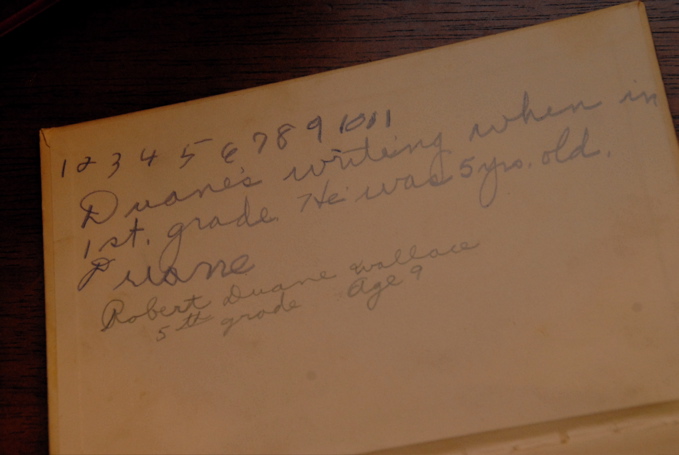 1 2 3 4 5 6 7 8 9 10 11
Duane's writing when in
1st. grade. He was 5 yrs. old.
Duane
Robert Duane Wallace
5th grade Age 9